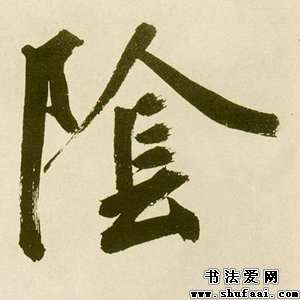 陰
书法爱网
www.shufaai.com